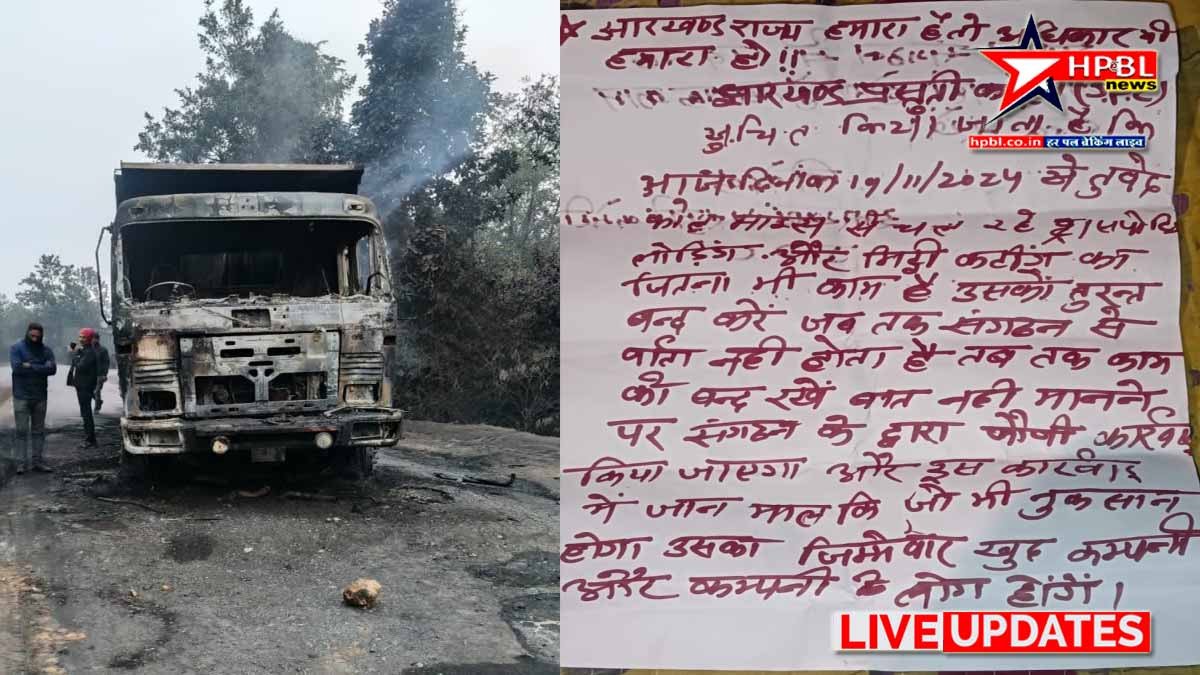 ★ झारखण्ड राज्य हमारा है तो अधिकार भी
हमारा हो!!
झारखण्ड प्रस्तुती क
सुचित किया जाता है कि
आज दिनांक 19/11/2024 से तुबेद
कोल माइन्स से चल रहे ट्रांसपोर्टिं
लोडिंग और मिट्टी कटींग का
जितना भी काम है उसको तुरन्त
बन्द करें जब तक संगठन से
वार्ता नही होता है तब तक काम
को बन्द रखें बात नही मानने
पर संगठन के द्वारा फौजी कार्रवाई
किया जाएगा और इस कार्रवाई
में जान माल कि जो भी नुकसान
होगा उसका जिम्मेवार खुद कम्पनी
और कम्पनी के लोग होगें।
HPBL
news
hpbl.co.in हर पल ब्रेकिंग लाइव
LIVE UPDATES